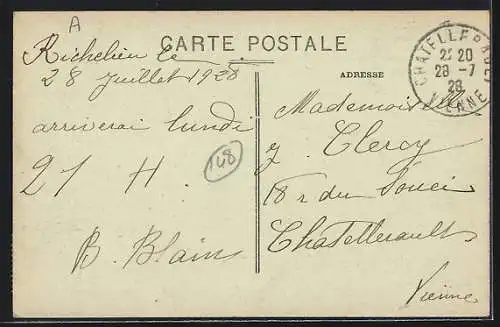 A
CARTE POSTALE
Richelieu le
28 juillet 1928
arriverai lundi
21 H.
B. Blain
148
ADRESSE
Mademoiselle
Y. Clercy
18 r du Souci
Chatellerault
Vienne
CHATELLERAULT
2? 20
28 -7
28
VIENNE